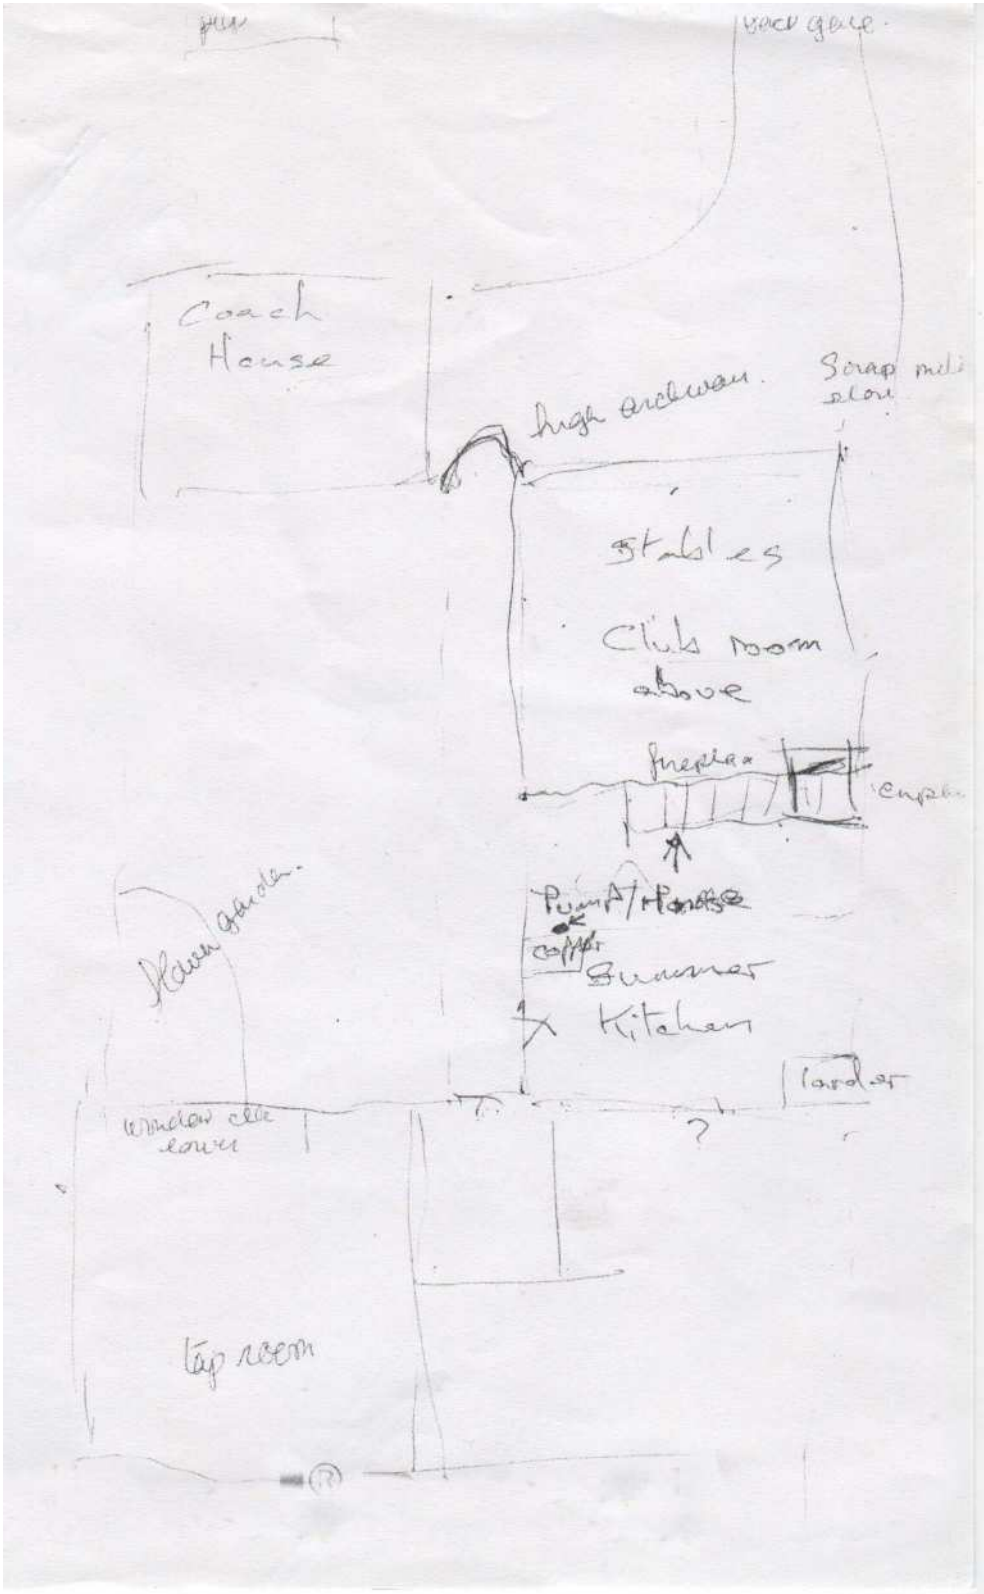 back gate.
Coach
House
high archway.
Scrap
Stables
Club room
above
fireplace
Pump/House
copper
Summer
Kitchen
larder
flower garden.
window
?
tap room
R